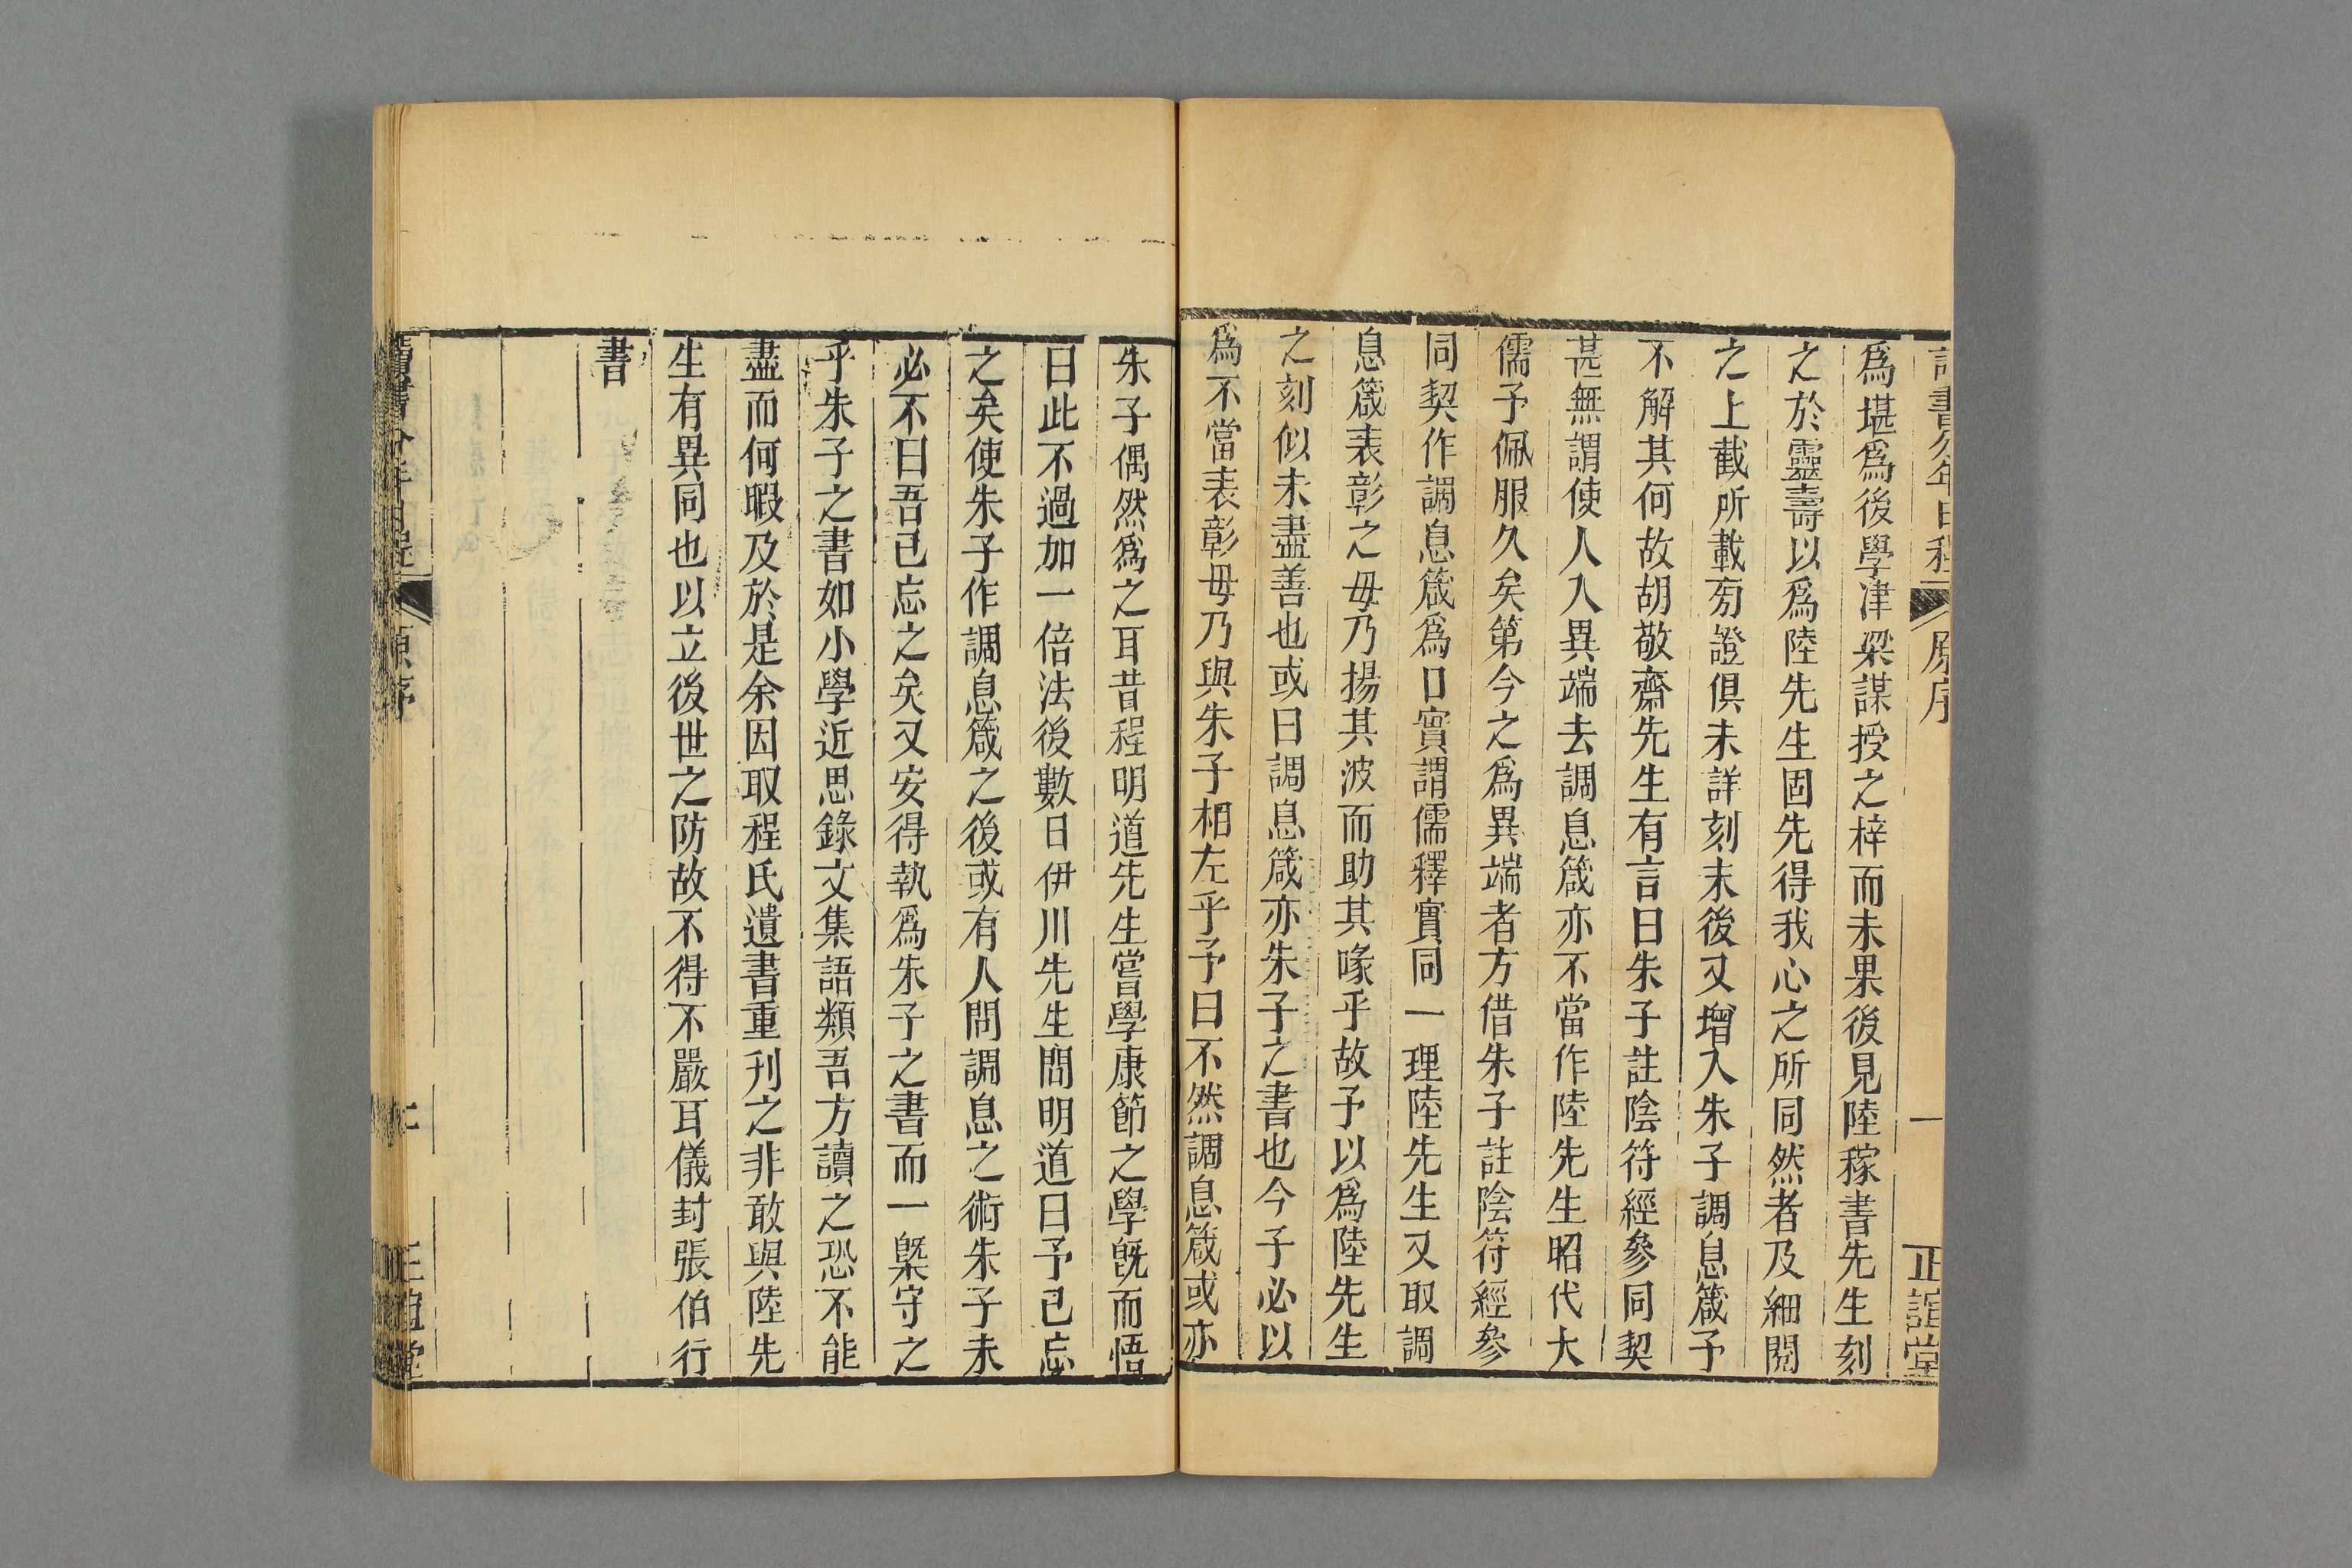 讀書分年日程 原序 一 正誼堂
爲堪爲後學津梁謀授之梓而未果後見陸稼書先生刻
之於靈壽以爲陸先生固先得我心之所同然者及細閱
之上截所載旁證俱未詳刻末後又增入朱子調息箴予
不解其何故胡敬齋先生有言曰朱子註陰符經參同契
甚無謂使人入異端去調息箴亦不當作陸先生昭代大
儒予佩服久矣第今之爲異端者方借朱子註陰符經參
同契作調息箴爲口實謂儒釋實同一理陸先生又取調
息箴表彰之毋乃揚其波而助其喙乎故予以爲陸先生
之刻似未盡善也或曰調息箴亦朱子之書也今子必以
爲不當表彰毋乃與朱子相左乎予曰不然調息箴或亦
朱子偶然爲之耳昔程明道先生嘗學康節之學旣而悟
曰此不過加一倍法後數日伊川先生問明道曰予已忘
之矣使朱子作調息箴之後或有人問調息之術朱子未
必不曰吾已忘之矣又安得執爲朱子之書而一槩守之
乎朱子之書如小學近思錄文集語類吾方讀之恐不能
盡而何暇及於是余因取程氏遺書重刊之非敢與陸先
生有異同也以立後世之防故不得不嚴耳儀封張伯行
書
讀書分年日程 原序 二 正誼堂